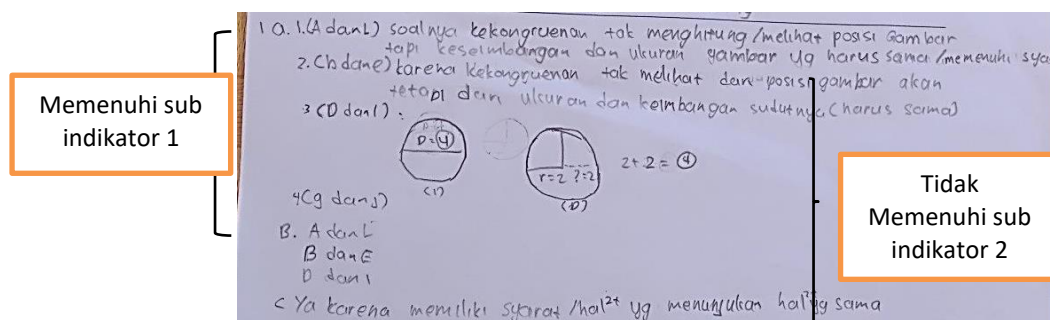 1 a. 1.(A dan L) soalnya kekongruenan tak menghitung/melihat posisi Gambar
tapi keseimbangan dan ukuran gambar yg harus sama/memenuhi sya
2.(h dan e) karena kekongruenan tak melihat dari posisi gambar akan
tetapi dari ukuran dan keimbangan sudutnya (harus sama)
3 (D dan I) :
D=4
r=2 ?=2
2+2=4
(I)
(D)
4(g dan J)
B. A dan L
B dan E
D dan I
c Ya karena memiliki syarat/hal²+ yg menunjukan hal² yg sama
Memenuhi sub
indikator 1
Tidak
Memenuhi sub
indikator 2